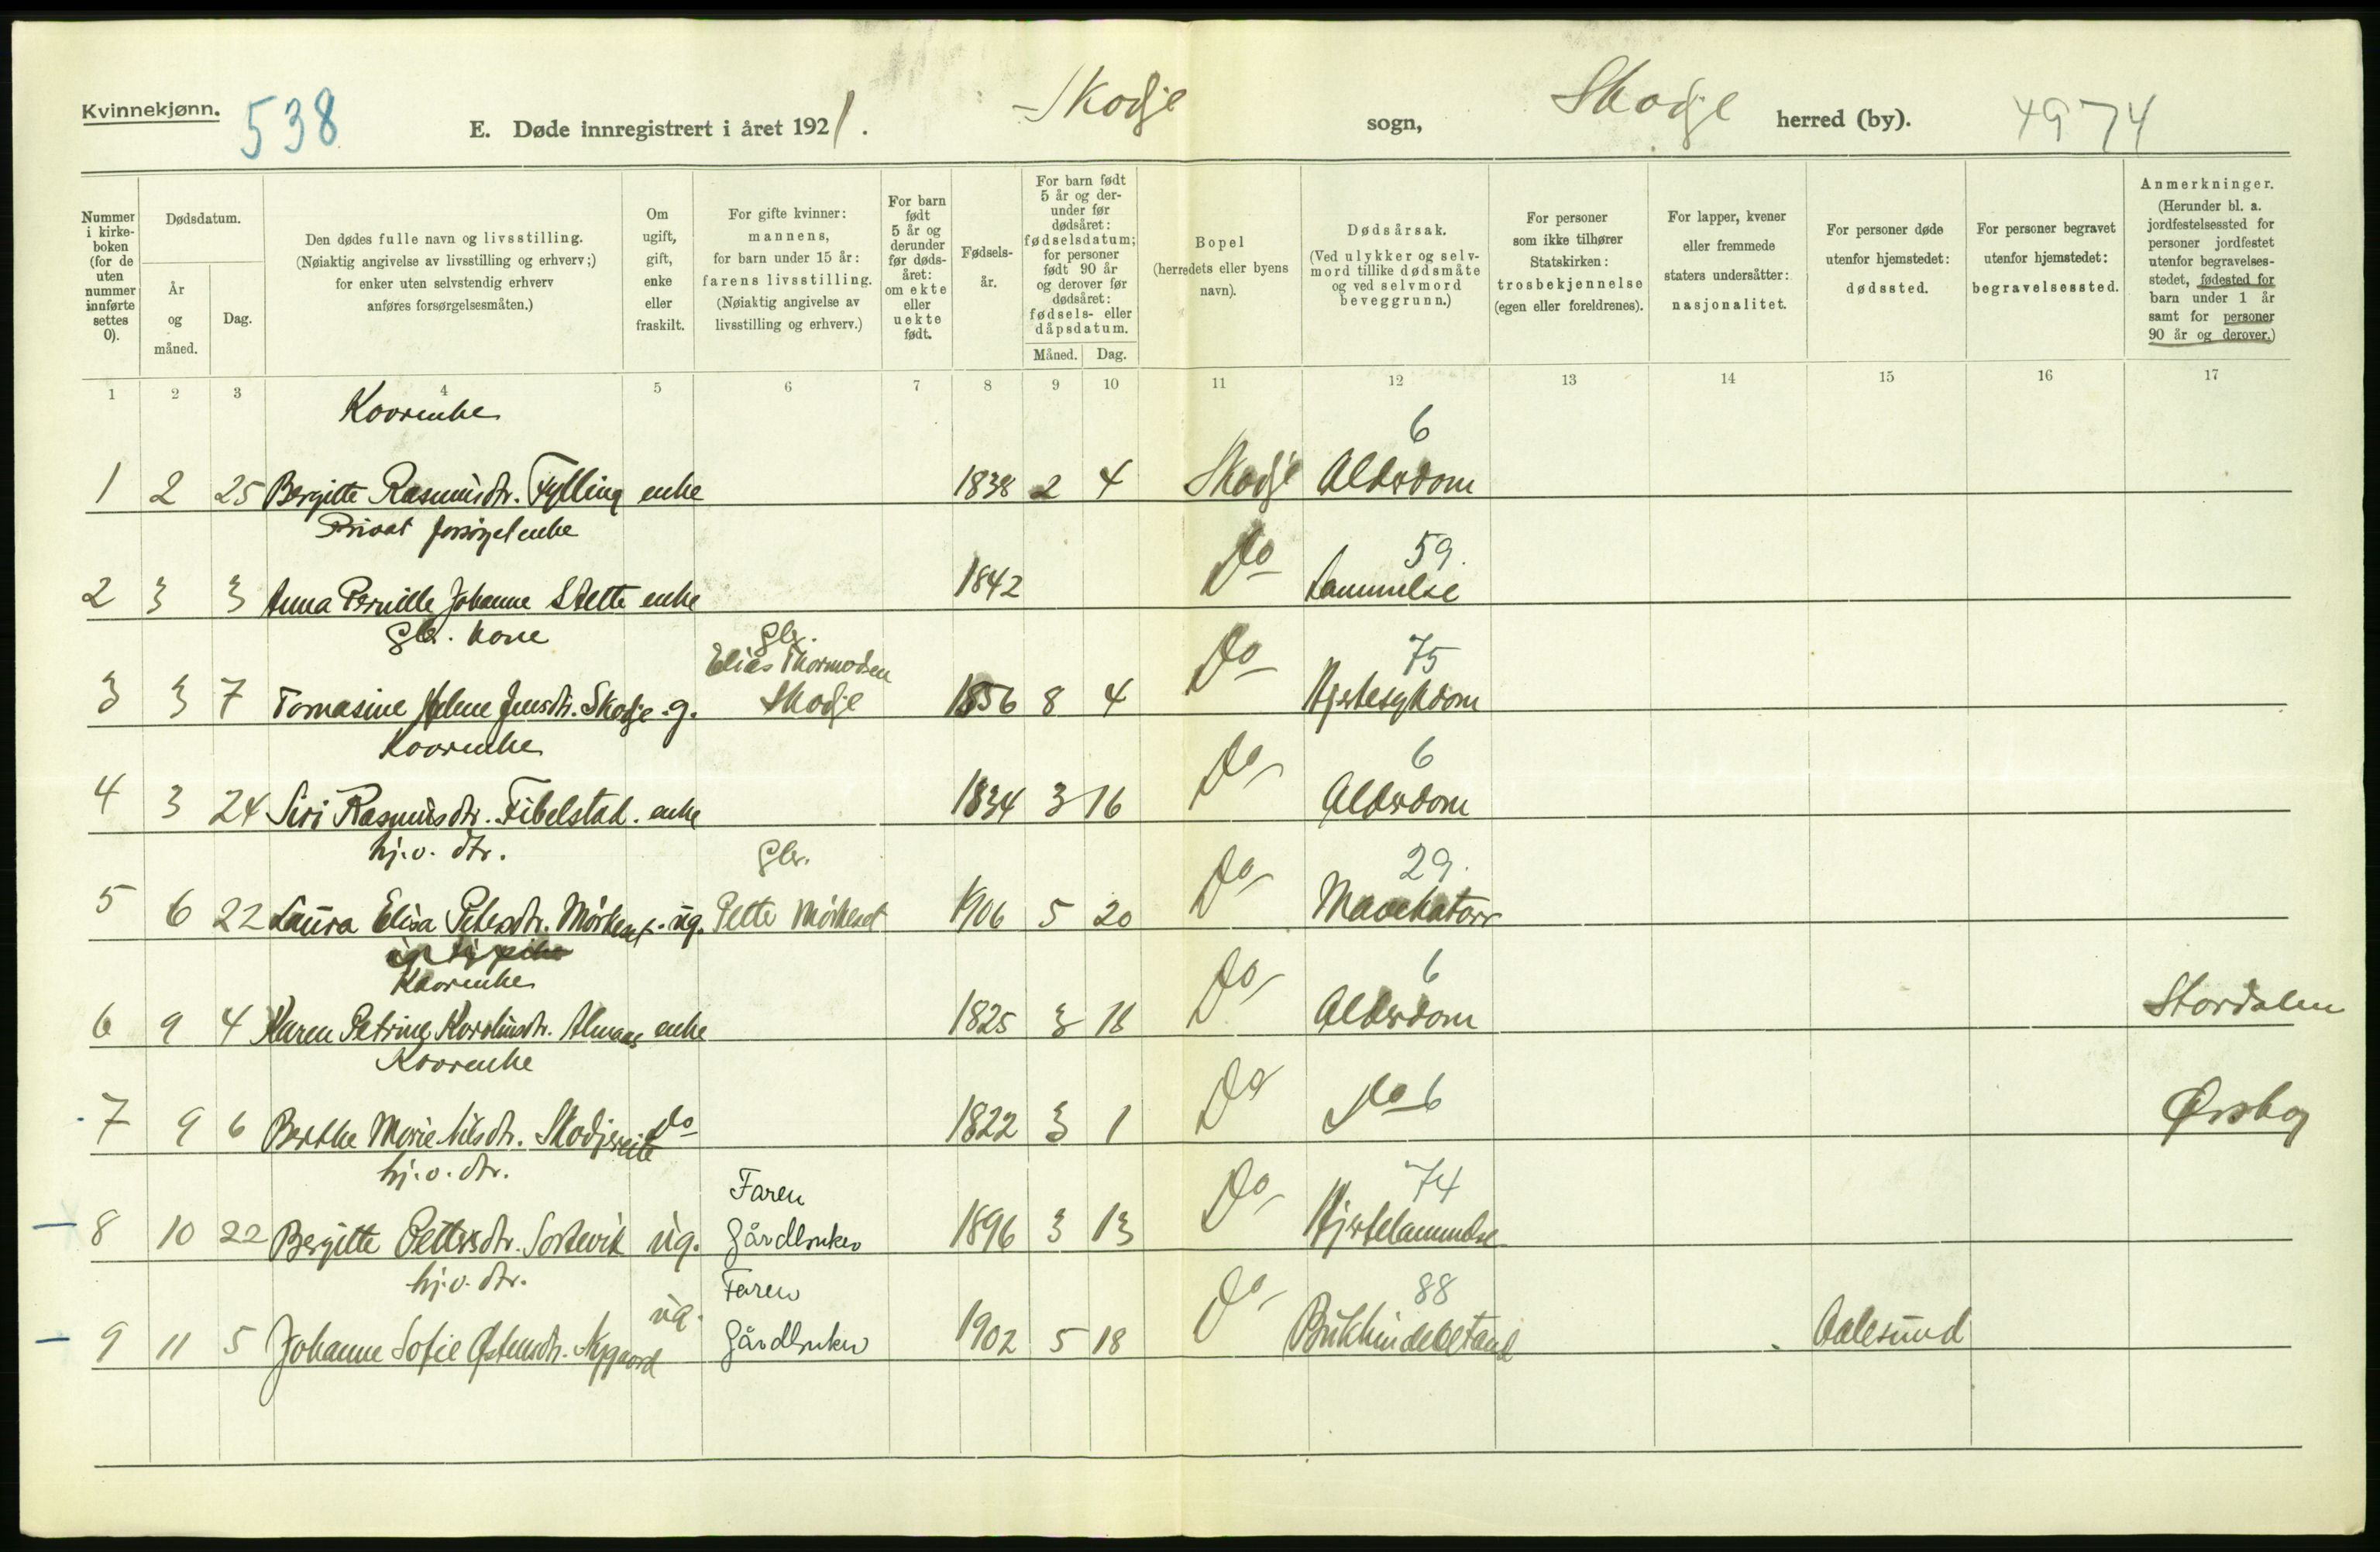 Kvinnekjønn.
538
E. Døde innregistrert i året 1921.
Skodje sogn, Skodje herred (by).
4974
Nummer i kirkeboken (for de uten nummer innførte settes 0).
Dødsdatum.
År og måned.
Dag.
Den dødes fulle navn og livsstilling.
(Nøiaktig angivelse av livsstilling og erhverv;)
for enker uten selvstendig erhverv
anføres forsørgelsesmåten.)
Om ugift, gift, enke eller fraskilt.
For gifte kvinner: mannens,
for barn under 15 år:
farens livsstilling.
(Nøiaktig angivelse av
livsstilling og erhverv.)
For barn født 5 år og derunder før dødsåret: om ekte eller uekte født.
Fødselsår.
For barn født 5 år og derunder før dødsåret: fødselsdatum; for personer født 90 år og derover før dødsåret: fødsels- eller dåpsdatum.
Måned. Dag.
Bopel
(herredets eller byens navn).
Dødsårsak.
(Ved ulykker og selvmord tillike dødsmåte og ved selvmord beveggrunn.)
For personer som ikke tilhører Statskirken: trosbekjennelse (egen eller foreldrenes).
For lapper, kvener eller fremmede staters undersåtter: nasjonalitet.
For personer døde utenfor hjemstedet: dødssted.
For personer begravet utenfor hjemstedet: begravelsessted.
Anmerkninger.
(Herunder bl. a. jordfestelsessted for personer jordfestet utenfor begravelsesstedet, fødested for barn under 1 år samt for personer 90 år og derover.)
1 2 3 4 5 6 7 8 9 10 11 12 13 14 15 16 17
Kaarenke 6
1 2 25 Bergitte Rasmusdtr. Fylling enke 1838 2 4 Skodje Alderdom
Privat forsørget enke 59.
2 3 3 Anna Pernille Johanne Stette enke 1842 Do Lammelse
Gbr. kone Gbr. 75
Elias Thormodsen
3 3 7 Tomasine Helene Jensdtr. Skodje g. Skodje 1856 8 4 Do Hjertesykdom
Kaarenke 6
4 3 24 Siri Rasmusdtr. Fibelstad. enke 1834 3 16 Do Alderdom
hj.v. dtr. Gbr. 29.
5 6 22 Laura Elisa Petersdtr. Mørkeset. ug. Pette Mørkeset 1906 5 20 Do Mavekatarr
Kaarenke 6
6 9 4 Karen Petrine Karolusdtr. Almaas enke 1825 3 18 Do Alderdom Stordalen
Kaarenke
7 9 6 Berthe Marie Nilsdtr. Skodjereite Do 1822 3 1 Do Do 6 Ørskog
hj.v. dtr. Faren 74
8 10 22 Bergitte Pettersdtr. Sortevik ug. Gårdbruker 1896 3 13 Do Hjertelammelse
hj.v. dtr. Faren 88
9 11 5 Johanne Sofie Østensdtr. Nygaard ug. Gårdbruker 1902 5 18 Do Bukhindebetænd Aalesund